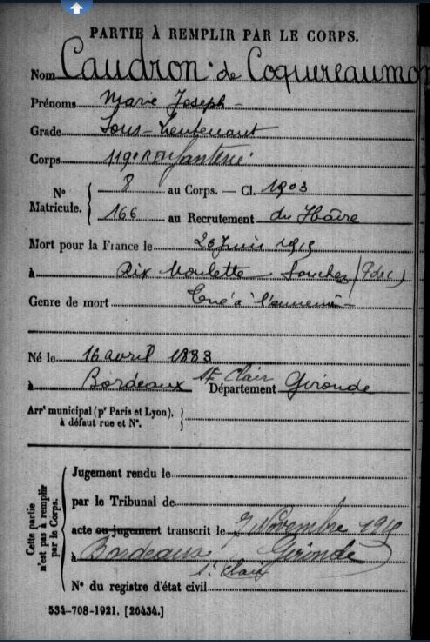 PARTIE À REMPLIR PAR LE CORPS.
Nom Caudron de Coquereaumon
Prénoms Marie Joseph
Grade Sous-Lieutenant
Corps 119e R. Infanterie
No Matricule. { 8 au Corps. — Cl. 1903
166 au Recrutement du Hâvre
Mort pour la France le 20 Juin 1915
à Aix Noulette Souchez (Pdec)
Genre de mort Tué à l'ennemi
Né le 16 avril 1883
à Bordeaux St Clair Département Gironde
Arrt municipal (pr Paris et Lyon), à défaut rue et No.
Cette partie n'est pas à remplir par le Corps.
Jugement rendu le
par le Tribunal de
acte ou jugement transcrit le 7 Novembre
à Bordeaux Gironde
St Clair
No du registre d'état civil
534-708-1921. [26434.]